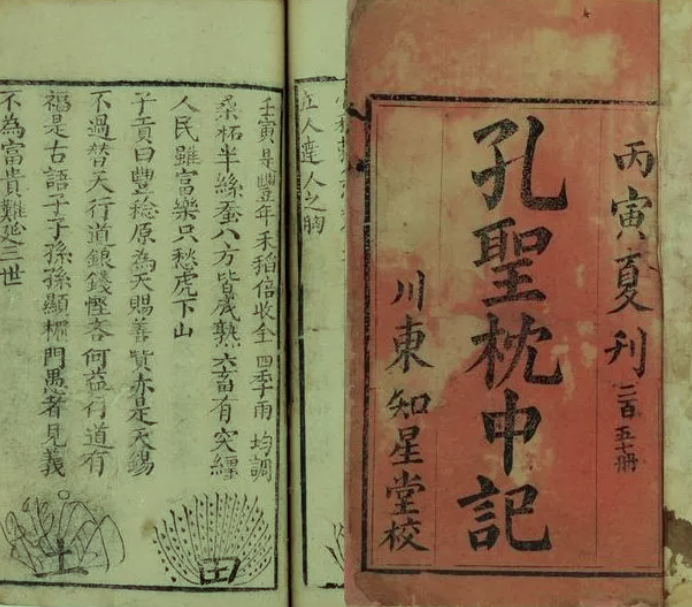 丙寅夏刊 二百五十册
孔聖枕中記
川東知星堂校
立人達人之胸
壬寅是豐年禾稻倍收全四季雨均調
桑柘半絲蚕八方皆成熟六畜有突纏
人民雖富樂只愁虎下山
子貢曰豐稔原為天賜善賢亦是天錫
不過替天行道銀錢慳吝何益行道有
福是古語子子孫孫顯楣門愚者見義
不為富貴難延三世
田
土